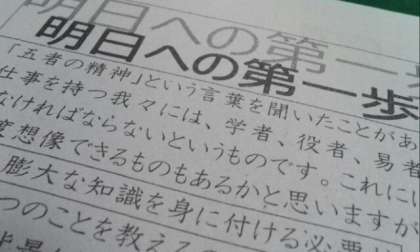 明日への第一歩
「五者の精神」という言葉を聞いたことがあ
仕事を持つ我々には、学者、役者、易者
なければならないというものです。これに
度想像できるものもあるかと思いますが
膨大な知識を身に付ける必要
つのことを教える